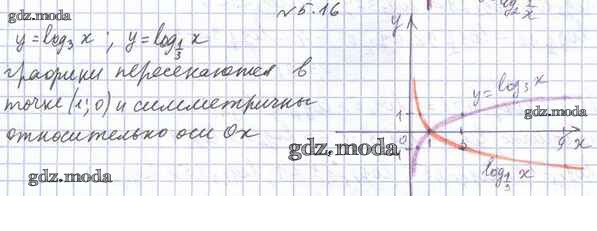 №5.16
gdz.moda
y = log₃ x ; y = log_{1/3} x
графики пересекаются в
точке (1; 0) и симметричны
относительно оси Ox
gdz.moda
y
y = log₃ x
1
gdz.moda
0 1 3 9 x
gdz.moda
-1
log_{1/3} x